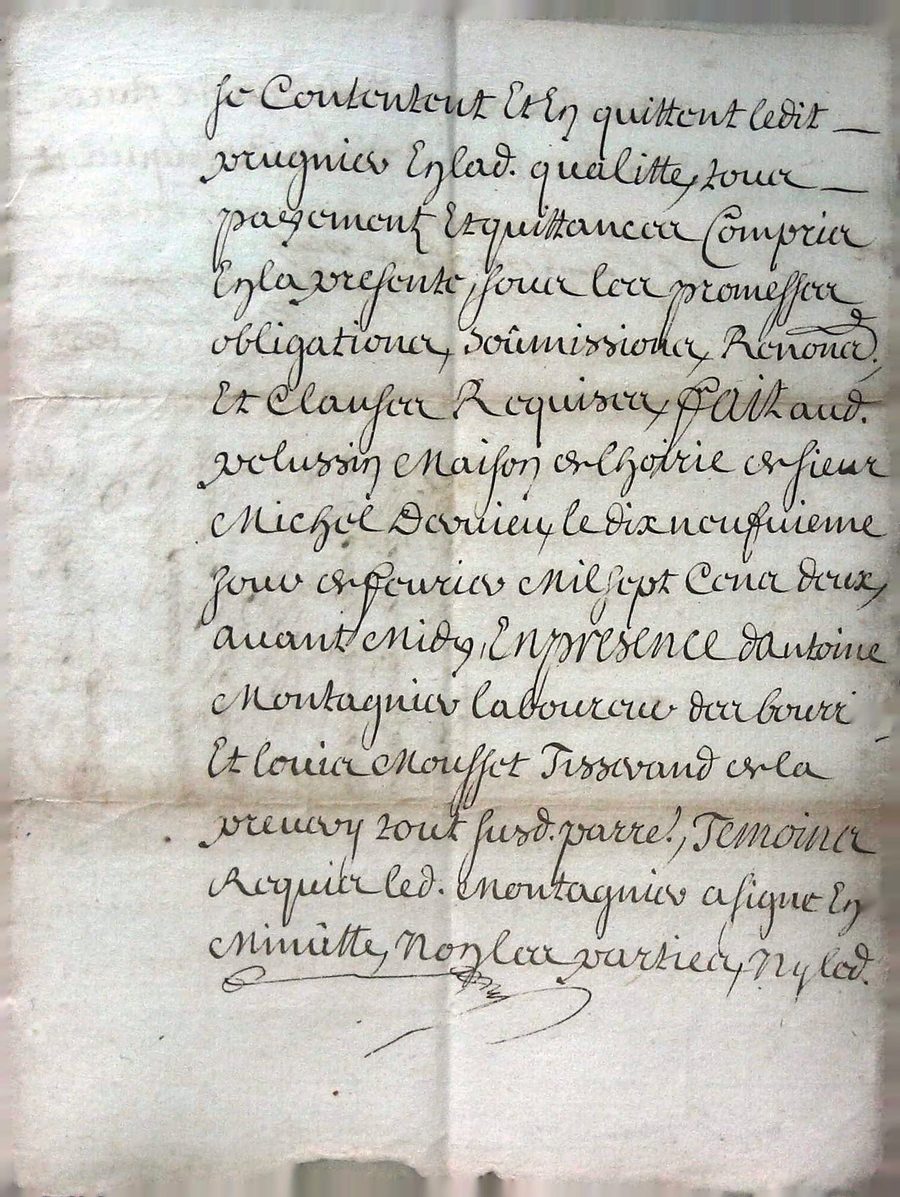 se Contentent Et En quittent ledit
prugnier En lad. qualitté, tous
payements Et quittances Compris
En la presente, sous les promesses
obligations, soûmissions, Renonãd.
Et Clauses Requises, fait aud.
pelussin Maison de lhoirie de sieur
Michel Dervieu, le dix neufuieme
jour de feurier Mil sept Cens deux,
auant Midy, En presence dAntoine
Montagnier laboureur des bourr
Et louis Mousset Tisserand de la
preuery tout susd. parre!, Temoins
Requis led. Montagnier a signé En
Minûtte, Non les parties, Ny led.